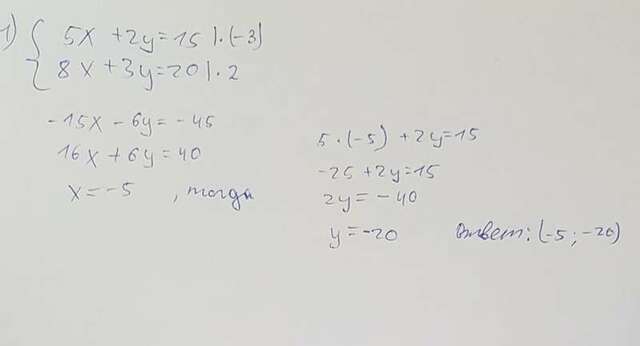 1) { 5x + 2y = 15 | · (-3)
8x + 3y = 20 | · 2
-15x - 6y = -45
16x + 6y = 40
x = -5 , тогда
5 · (-5) + 2y = 15
-25 + 2y = 15
2y = -40
y = -20 Ответ: (-5; -20)